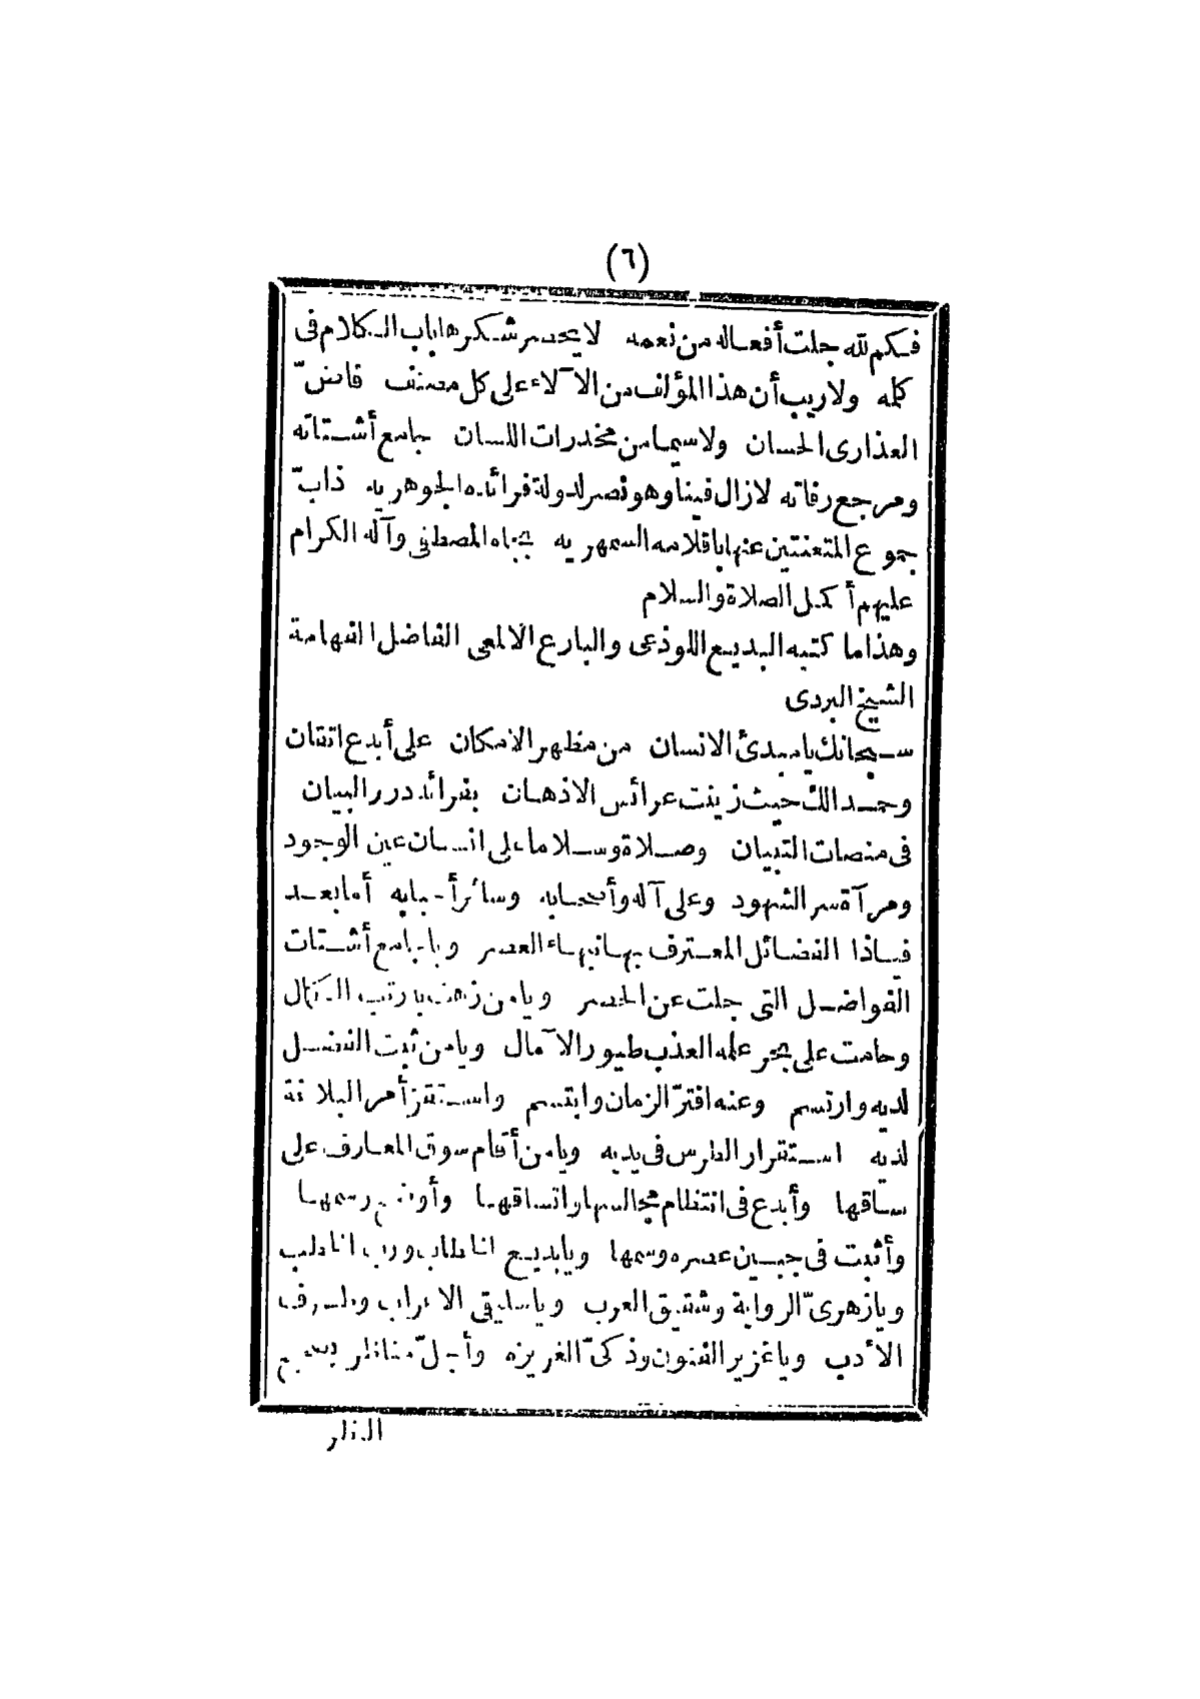 (٦)
فكم لله جلت أفعاله من نعمه لا يحصر شكرها باب الكلام فى
كله ولاريب أن هذا المؤلف من الآلاء على كل مصنف فاضّ
العذارى الحسان ولا سيما من مخدرات اللسان جامع أشتاته
ومرجع رفاته لازال فينا وهو نصر لدولة فرائده الجوهريه ذابّ
جموع المتعنتين عنها باقلامه السمهريه بجاه المصطفى وآله الكرام
عليهم أكمل الصلاة والسلام
وهذا ما كتبه البديع اللوذعى والبارع الالمعى الفاضل الفهامة
الشيخ البردى
سبحانك يا مبدئ الانسان من مظهر الامكان على أبدع اتقان
وحمدا لك حيث زينت عرائس الاذهان بفرائد درر البيان
فى منصات التبيان وصلاة وسلاما على انسان عين الوجود
ومرآة سر الشهود وعلى آله وأصحابه وسائر أحبابه أما بعد
فياذا الفضائل المعترف بها نبهاء العصر ويا جامع أشتات
الفواضل التى جلت عن الحصر ويا من زهت بارتب الكمال
وحامت على بحر علمه العذب طيور الآمال ويا من ثبت الفضل
لديه وارتسم وعنه افترّ الزمان وابتسم واستقر أمر البلاغة
لديه استقرار الطرس فى يديه ويا من أقام سوق المعارف على
ساقها وأبدع فى انتظام مجالسها واتساقها وأوضح رسمها
وأثبت فى جبين عصره وسمها ويا بديع
ويا زهرىّ الرواية وشقيق العرب ويا سليقى الاعراب وطرف
الأدب ويا غزير الفنون وذكىّ الغريزه وأجلّ مناظر بسمع